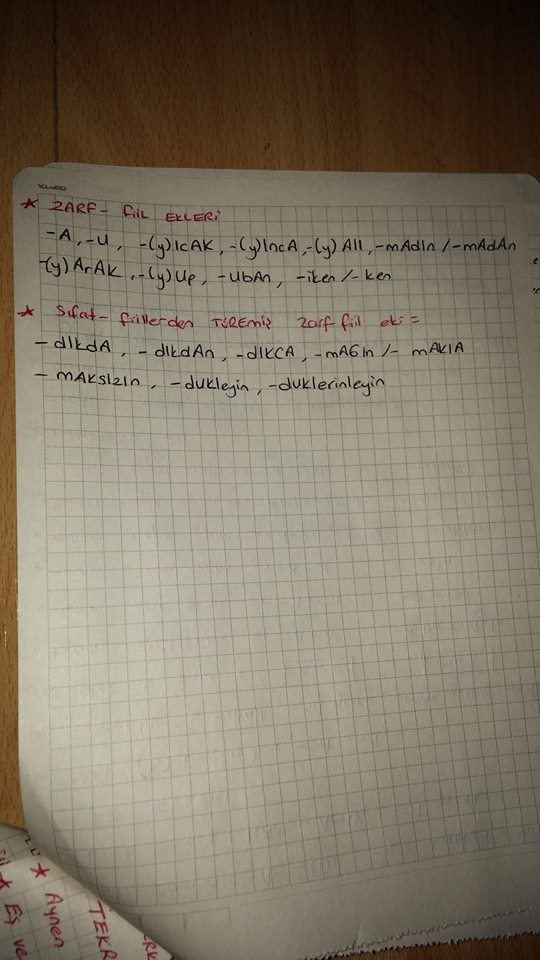 * ZARF- FİİL EKLERİ
-A, -U, -(y)IcAK, -(y)IncA, -(y)AlI, -mAdIn /-mAdAn
-(y)ArAk, -(y)Up, -UbAn, -iken /-ken
* Sıfat- fiillerden TÜREMİŞ Zarf fiil eki =
- dIkdA, - dIkdAn, -dIKCA, -mAGIn /- mAKlA
- mAksIzIn, -dukleyin, -duklerinleyin
* Aynen
* Eş ve
TEKR